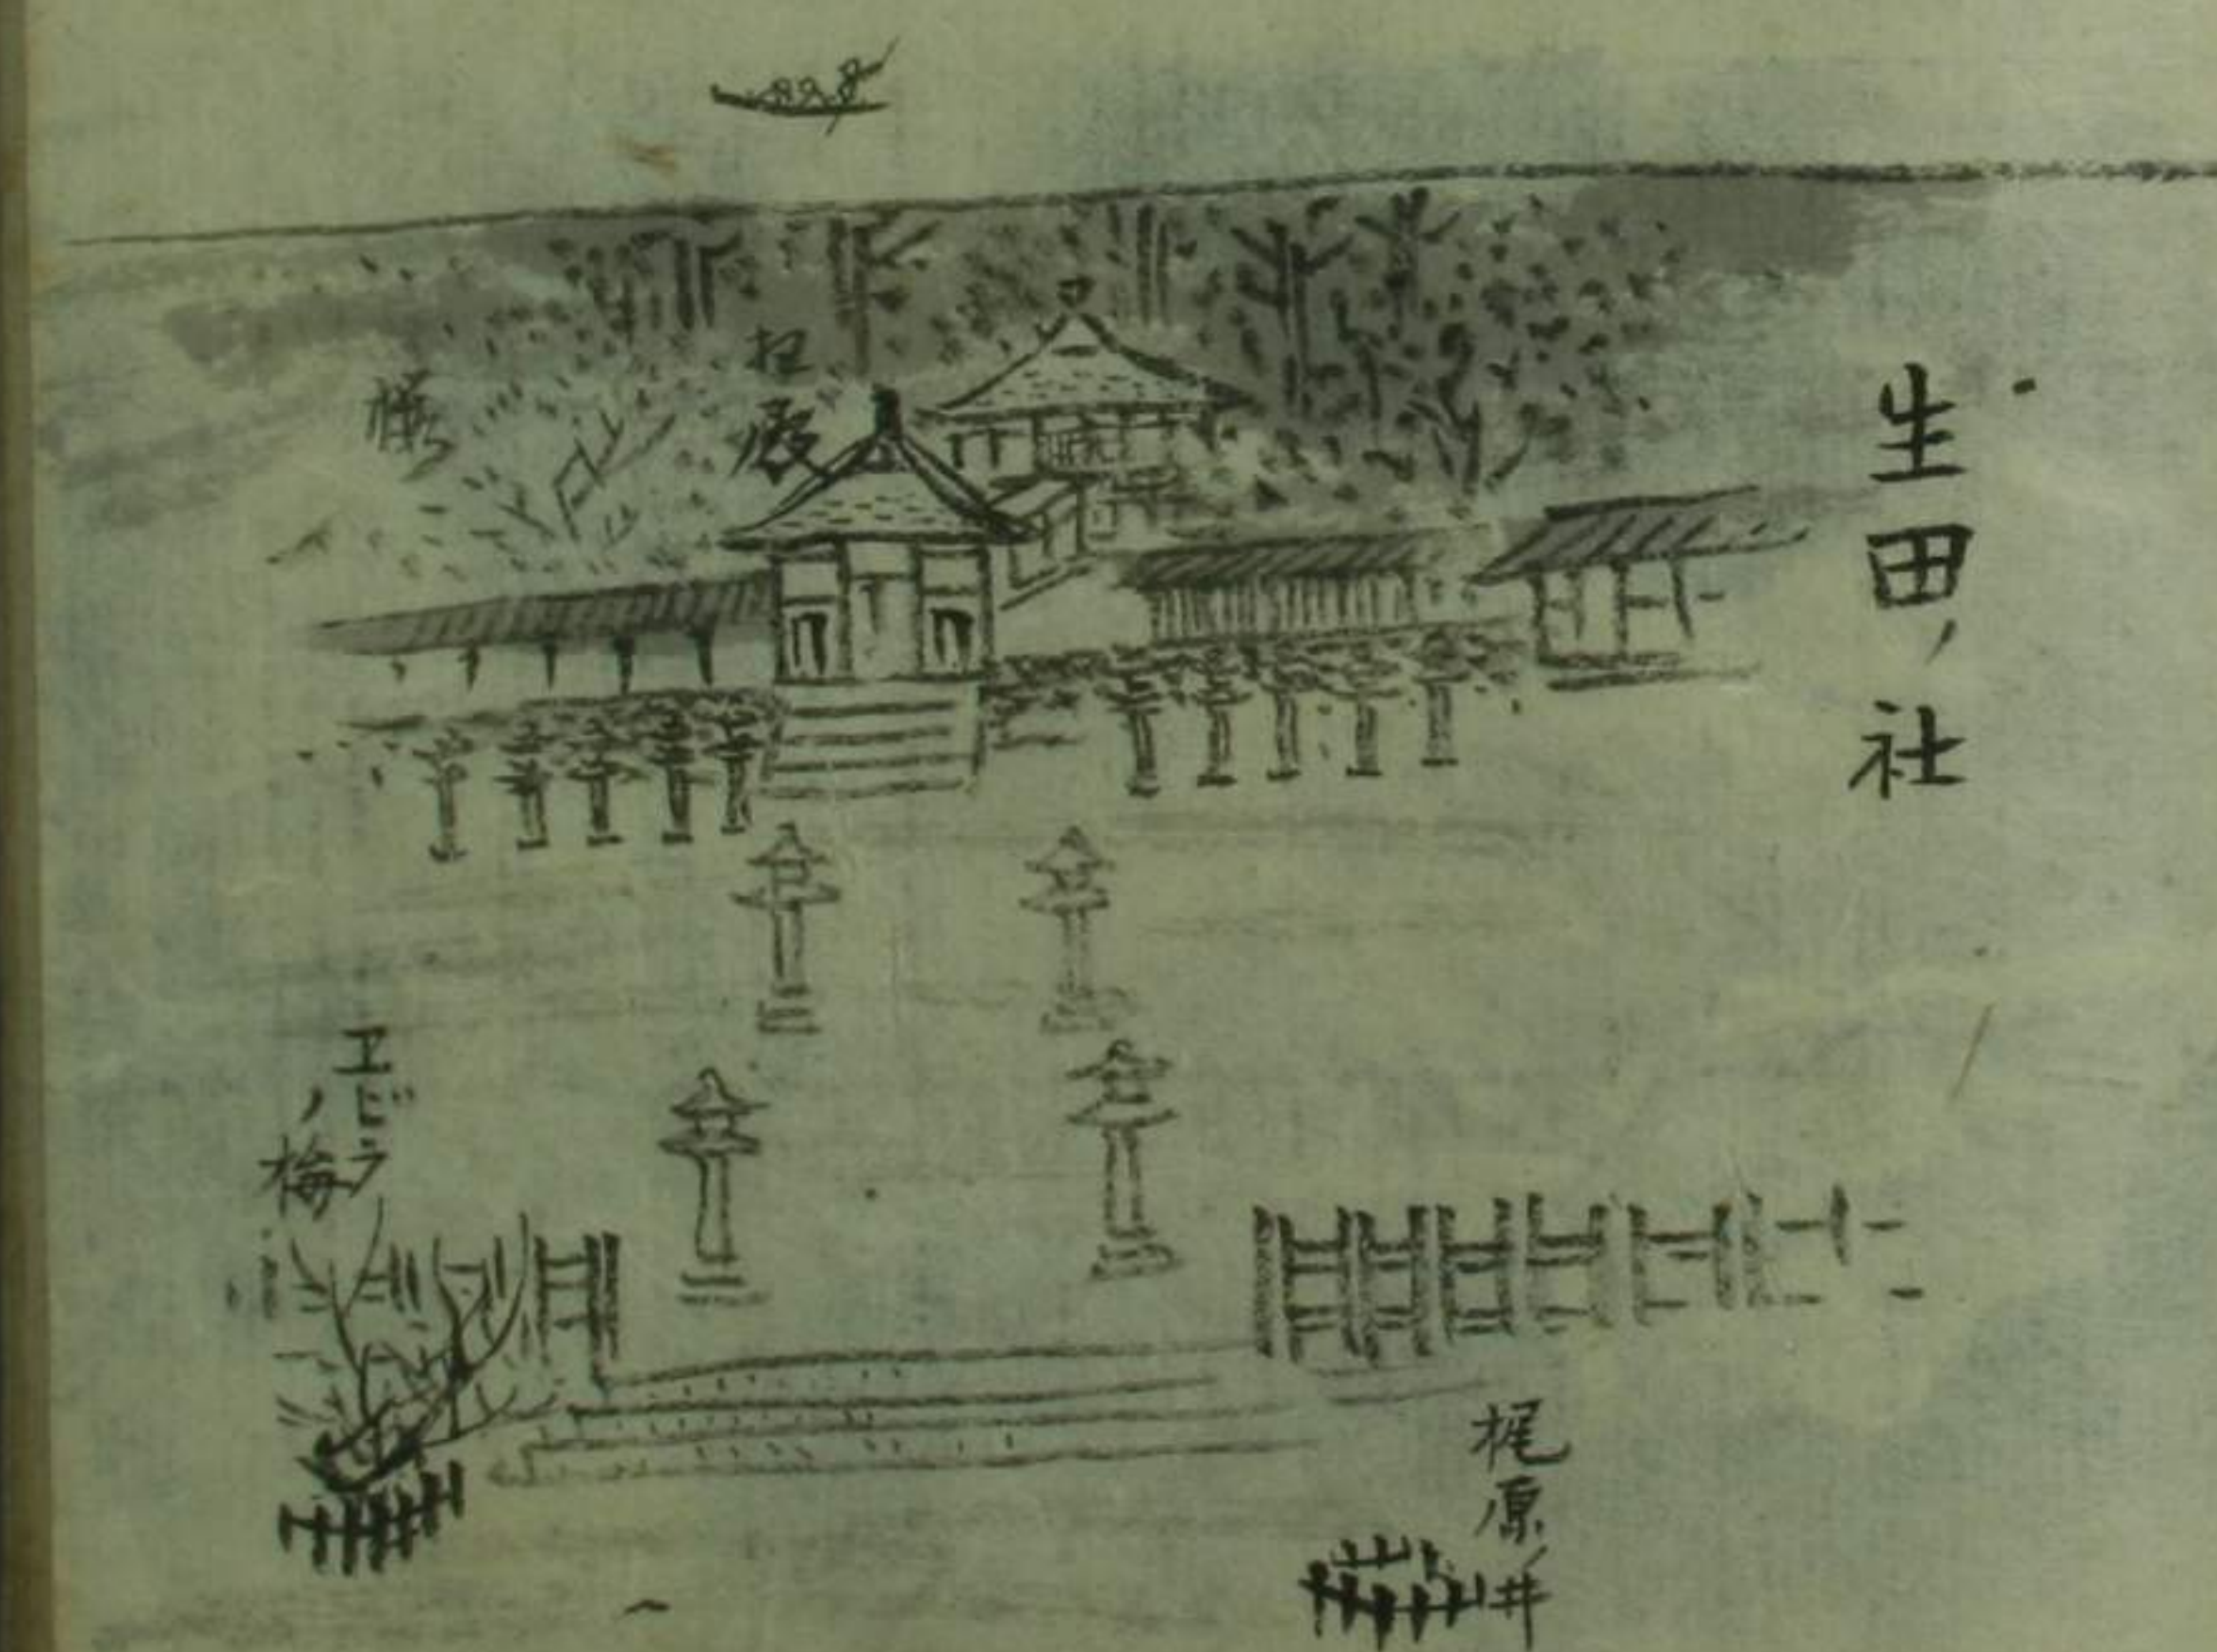 生田ノ社
拝殿
櫻
ヱビラ
ノ梅
梶原ノ井